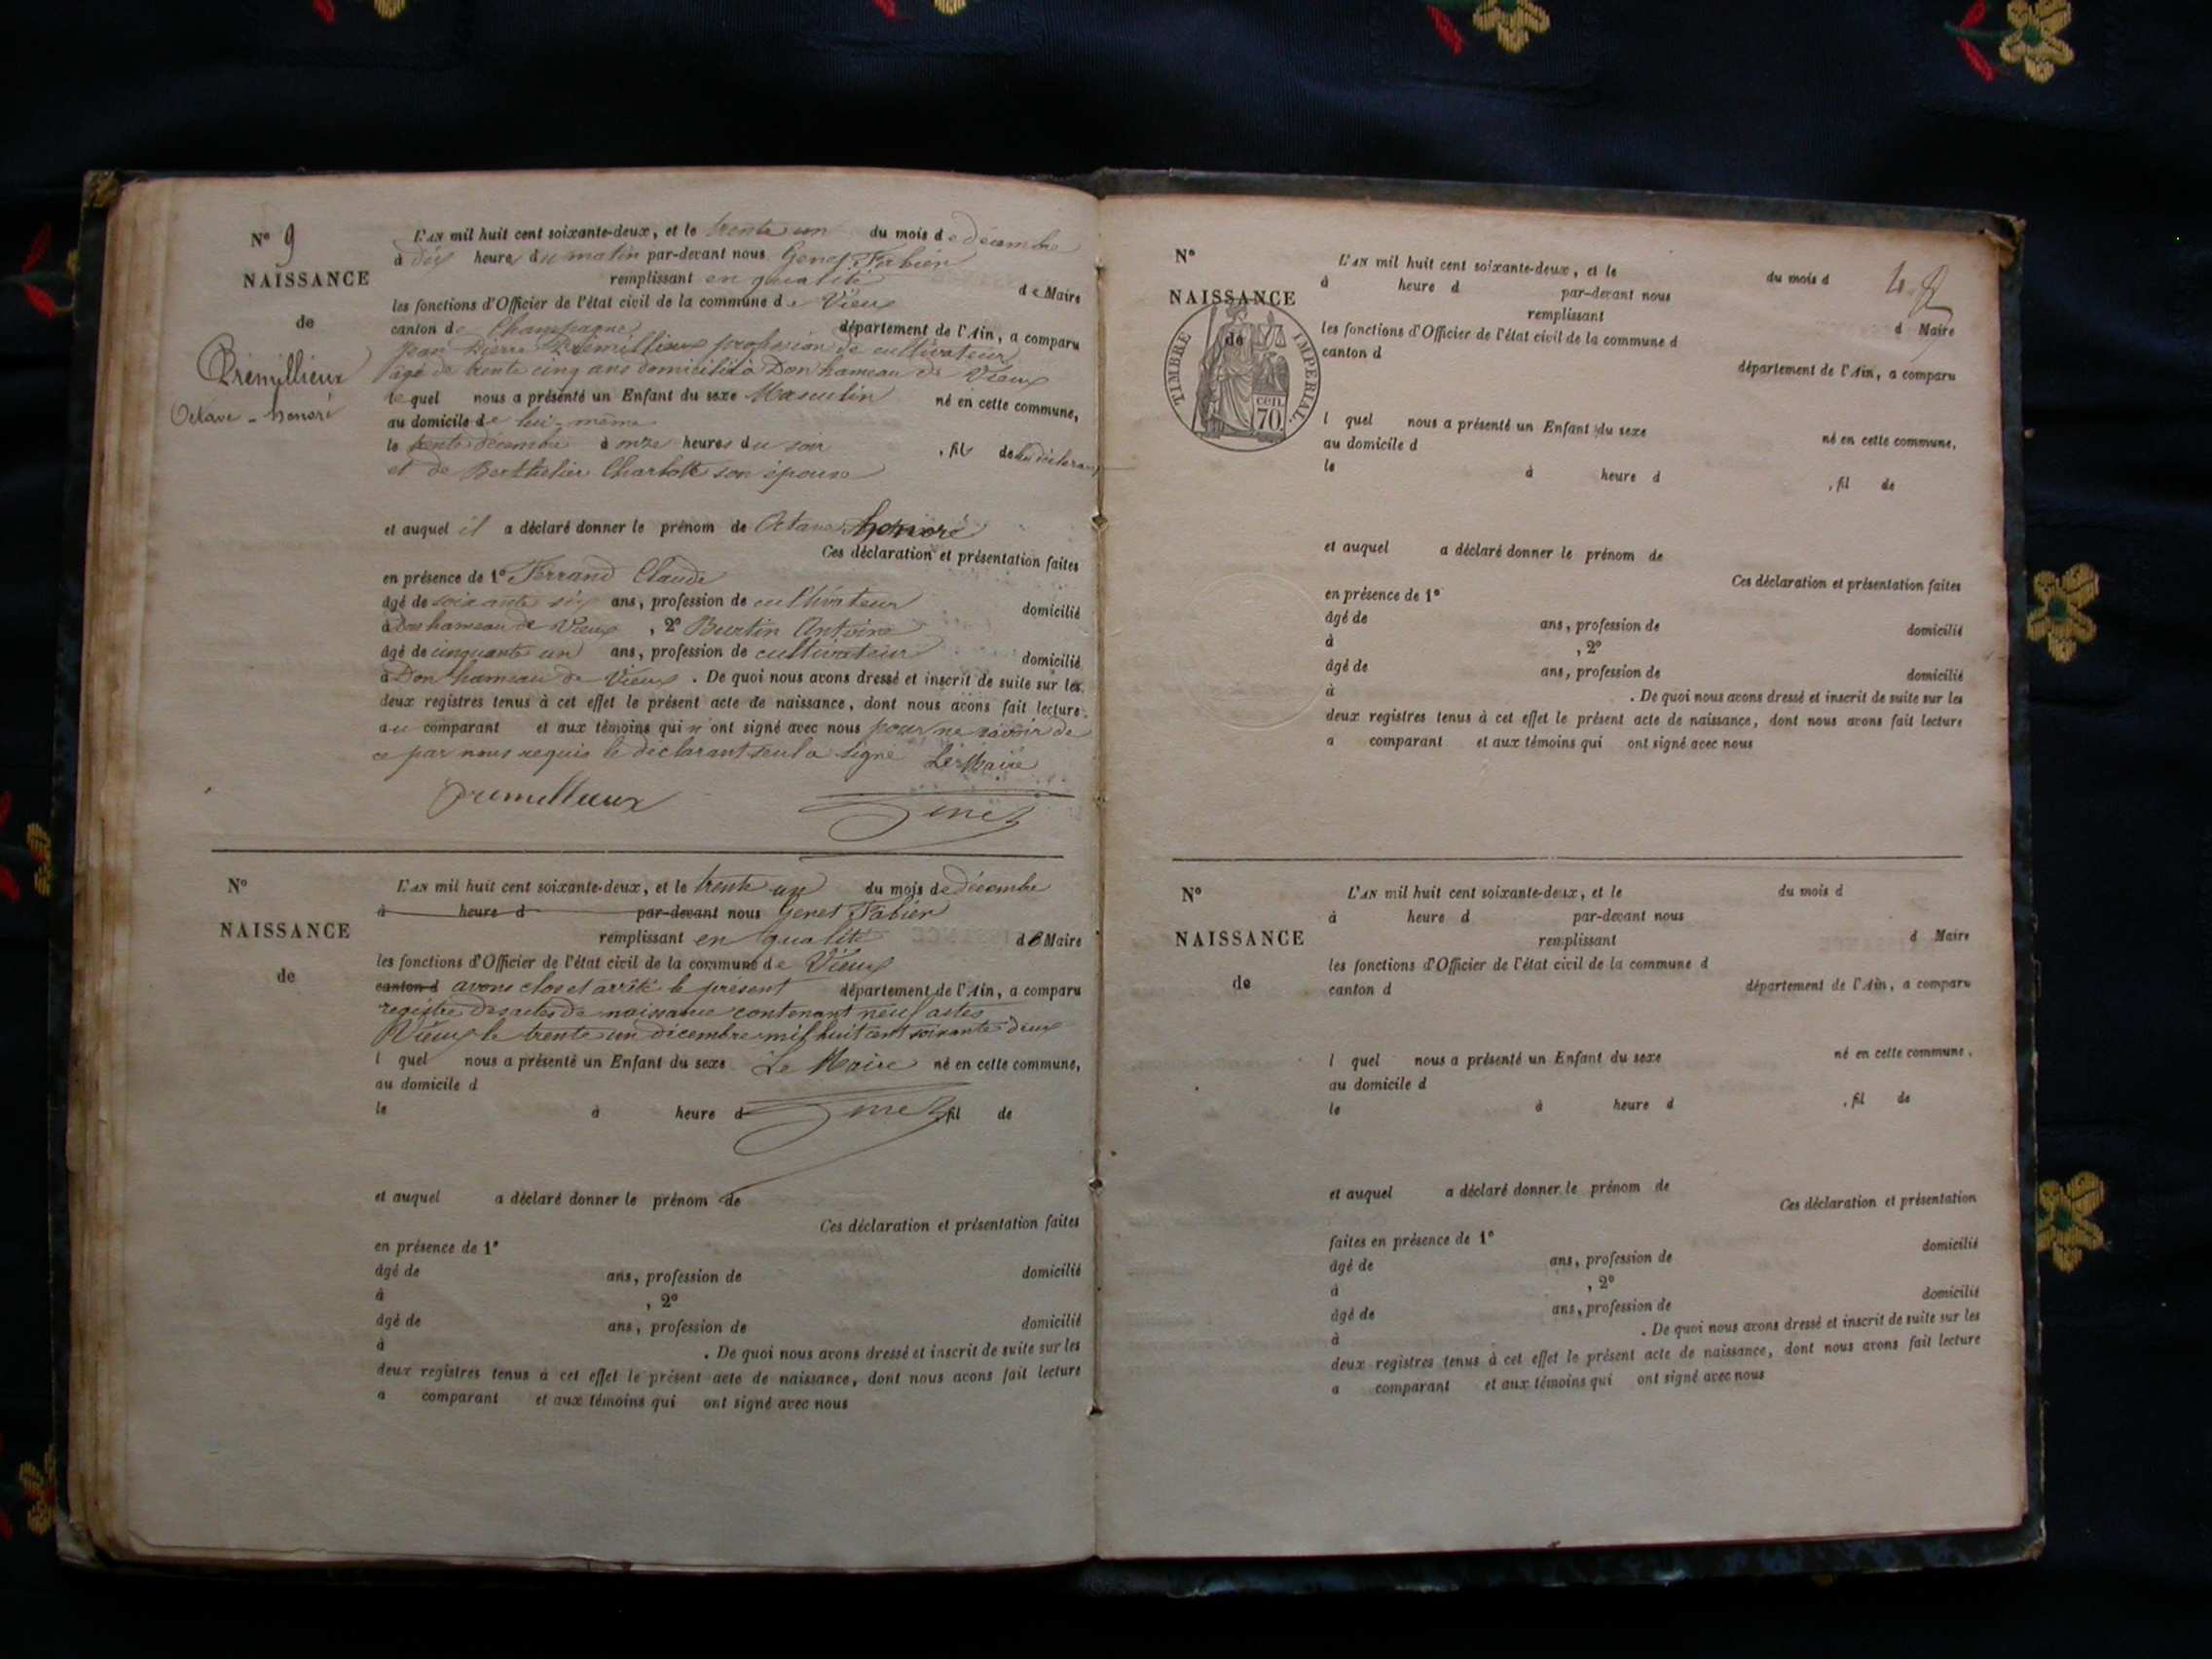 N° 9
NAISSANCE
de
Prémillieux
Octave - honoré
L'AN mil huit cent soixante-deux, et le trente un du mois de décembre
à dix heures du matin par-devant nous Genet Fabien
remplissant en qualité de Maire
les fonctions d'Officier de l'état civil de la commune de Vieux
canton de Champagne département de l'Ain, a comparu
Jean Pierre Prémillieux profession de cultivateur
âgé de trente cinq ans domicilié à Don hameau de Vieux
lequel nous a présenté un Enfant du sexe Masculin né en cette commune,
au domicile de lui-même
le trente décembre à onze heures du soir , fils de du déclarant
et de Berthelier Charlotte son épouse
et auquel il a déclaré donner le prénom de Octave honoré
Ces déclaration et présentation faites
en présence de 1° Ferrand Claude
âgé de soixante six ans, profession de cultivateur domicilié
à Don hameau de Vieux , 2° Burtin Antoine
âgé de cinquante un ans, profession de cultivateur domicilié
à Don hameau de Vieux . De quoi nous avons dressé et inscrit de suite sur les
deux registres tenus à cet effet le présent acte de naissance, dont nous avons fait lecture
au comparant et aux témoins qui n'ont signé avec nous pour ne savoir de
ce par nous requis le déclarant seul a signé Le Maire
Premillieux Genet
N°
NAISSANCE
de
L'AN mil huit cent soixante-deux, et le trente un du mois de décembre
à heure d par-devant nous Genet Fabien
remplissant en qualité de Maire
les fonctions d'Officier de l'état civil de la commune de Vieux
canton d avons clos et arrêté le présent département de l'Ain, a comparu
registre des actes de naissance contenant neuf actes
Vieux le trente un décembre mil huit cent soixante deux
l quel nous a présenté un Enfant du sexe Le Maire né en cette commune,
au domicile d
le à heure d Genet , fil de
et auquel a déclaré donner le prénom de
Ces déclaration et présentation faites
en présence de 1°
âgé de ans, profession de domicilié
à , 2°
âgé de ans, profession de domicilié
à . De quoi nous avons dressé et inscrit de suite sur les
deux registres tenus à cet effet le présent acte de naissance, dont nous avons fait lecture
a comparant et aux témoins qui ont signé avec nous
N°
NAISSANCE
de
TIMBRE IMPERIAL
70 cen.
L'AN mil huit cent soixante-deux, et le du mois d
à heure d par-devant nous
remplissant d Maire
les fonctions d'Officier de l'état civil de la commune d
canton d département de l'Ain, a comparu
l quel nous a présenté un Enfant du sexe né en cette commune,
au domicile d
le à heure d , fil de
et auquel a déclaré donner le prénom de
Ces déclaration et présentation faites
en présence de 1°
âgé de ans, profession de domicilié
à , 2°
âgé de ans, profession de domicilié
à . De quoi nous avons dressé et inscrit de suite sur les
deux registres tenus à cet effet le présent acte de naissance, dont nous avons fait lecture
a comparant et aux témoins qui ont signé avec nous
N°
NAISSANCE
de
L'AN mil huit cent soixante-deux, et le du mois d
à heure d par-devant nous
remplissant d Maire
les fonctions d'Officier de l'état civil de la commune d
canton d département de l'Ain, a comparu
l quel nous a présenté un Enfant du sexe né en cette commune,
au domicile d
le à heure d , fil de
et auquel a déclaré donner le prénom de
Ces déclaration et présentation
faites en présence de 1° domicilié
âgé de ans, profession de
à , 2° domicilié
âgé de ans, profession de
à . De quoi nous avons dressé et inscrit de suite sur les
deux registres tenus à cet effet le présent acte de naissance, dont nous avons fait lecture
a comparant et aux témoins qui ont signé avec nous